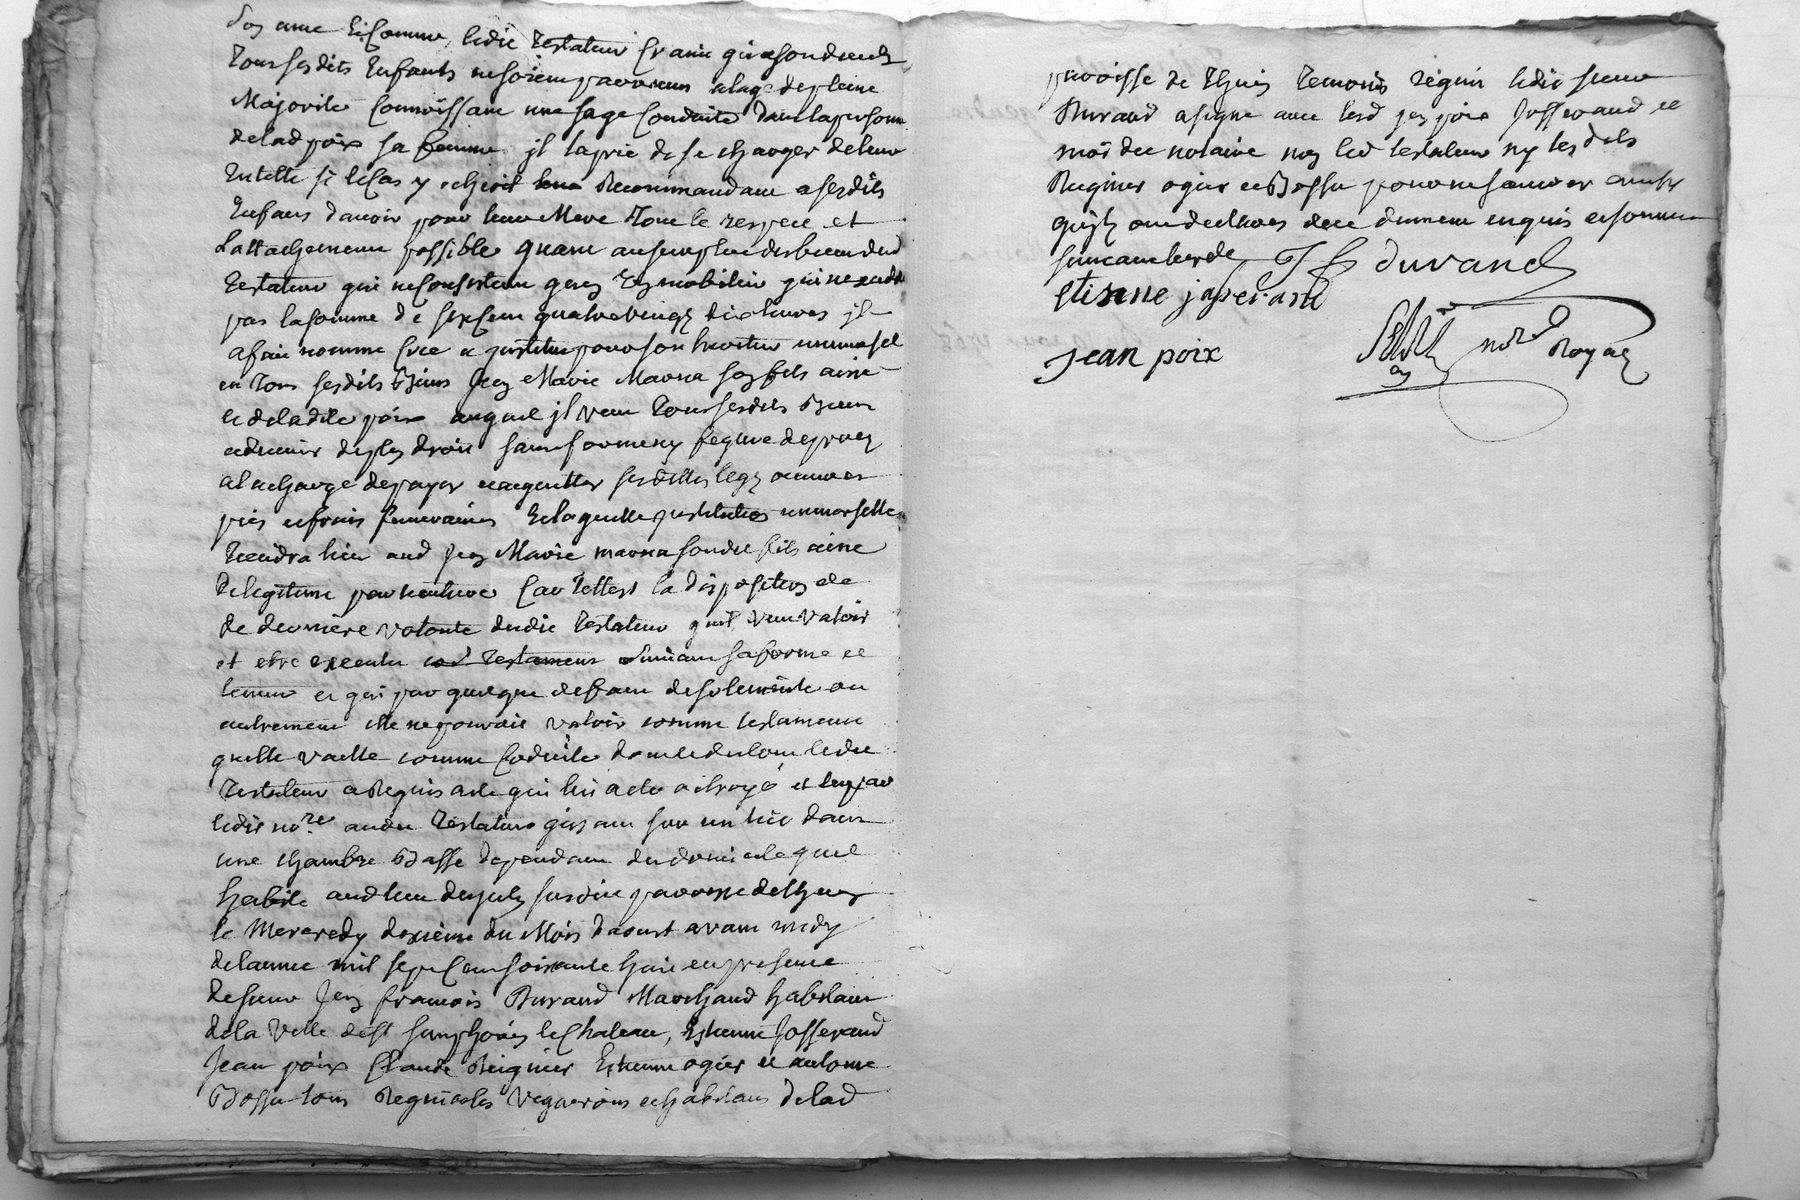 son ame Et comme ledit Testateur craint qu'a son deceds
Tous ses dits Enfants ne soient parvenus a lage de pleine
Majorité connoissant une sage conduite dans la personne
de lad poix sa femme il la prie de se charger de leur
tutelle si le cas y echoit Recommandant a ses dits
Enfans d'avoir pour leur Mere Tout le respect et
L'attachement possible quant au surplus des biens dud
Testateur qui ne consistent qu'en mobilier qui n'excede
pas la somme de six cent quatre vingt dix livres il
a fait nommé créé et institue pour son heritier universel
en Tous ses dits Biens Jean Marie Marna son fils ainé
et de ladite poix auquel il veut Tous ses dits Biens
advenir de plein droit sans forme ny figure de proces
a la charge de payer et acquitter ses dittes legs œuvres
pies et frais funeraires Et laquelle institution universelle
Tiendra lieu aud Jean Marie marna son dit fils ainé
De legitime Car Telle est la disposition de
de derniere volonté dudit Testateur quil veut valoir
et etre executée Testament suivant sa forme et
teneur et qui par quelque defaut de solemnité ou
autrement elle ne pouvait valoir comme testament
quelle vaille comme Codicile dont et du tout ledit
Testateur a Requis acte qui lui a eté octroyé et lu par
ledit no.re audit Testateur gisant sur un lit dans
une chambre Basse dependant du domicile quil
habite aud lieu susdite paroisse de
le Mercredy dixième du Mois d'aoust avant midy
de l'année mil sept cent soixante huit en presence
de sieur Jean francois Durand Marchand habitant
de la Ville de st simphorien le Chateau, Estienne Josserand
Jean poix Claude Reignier Estienne ogier et antoine
Bossu tous Regnicoles Vignerons et habitans de lad
paroisse de Temoins requis ledit sieur
Durand a signé avec lesd jean poix Josserand et
moi dit notaire non led testateur ny les dits
Regnier ogier et Bossu pour ne scavoir ainsy
quils ont declarés de ce dument enquis et sommés
suivant lesd JF durand
etienne jaserand
Jean poix
no.re Royal